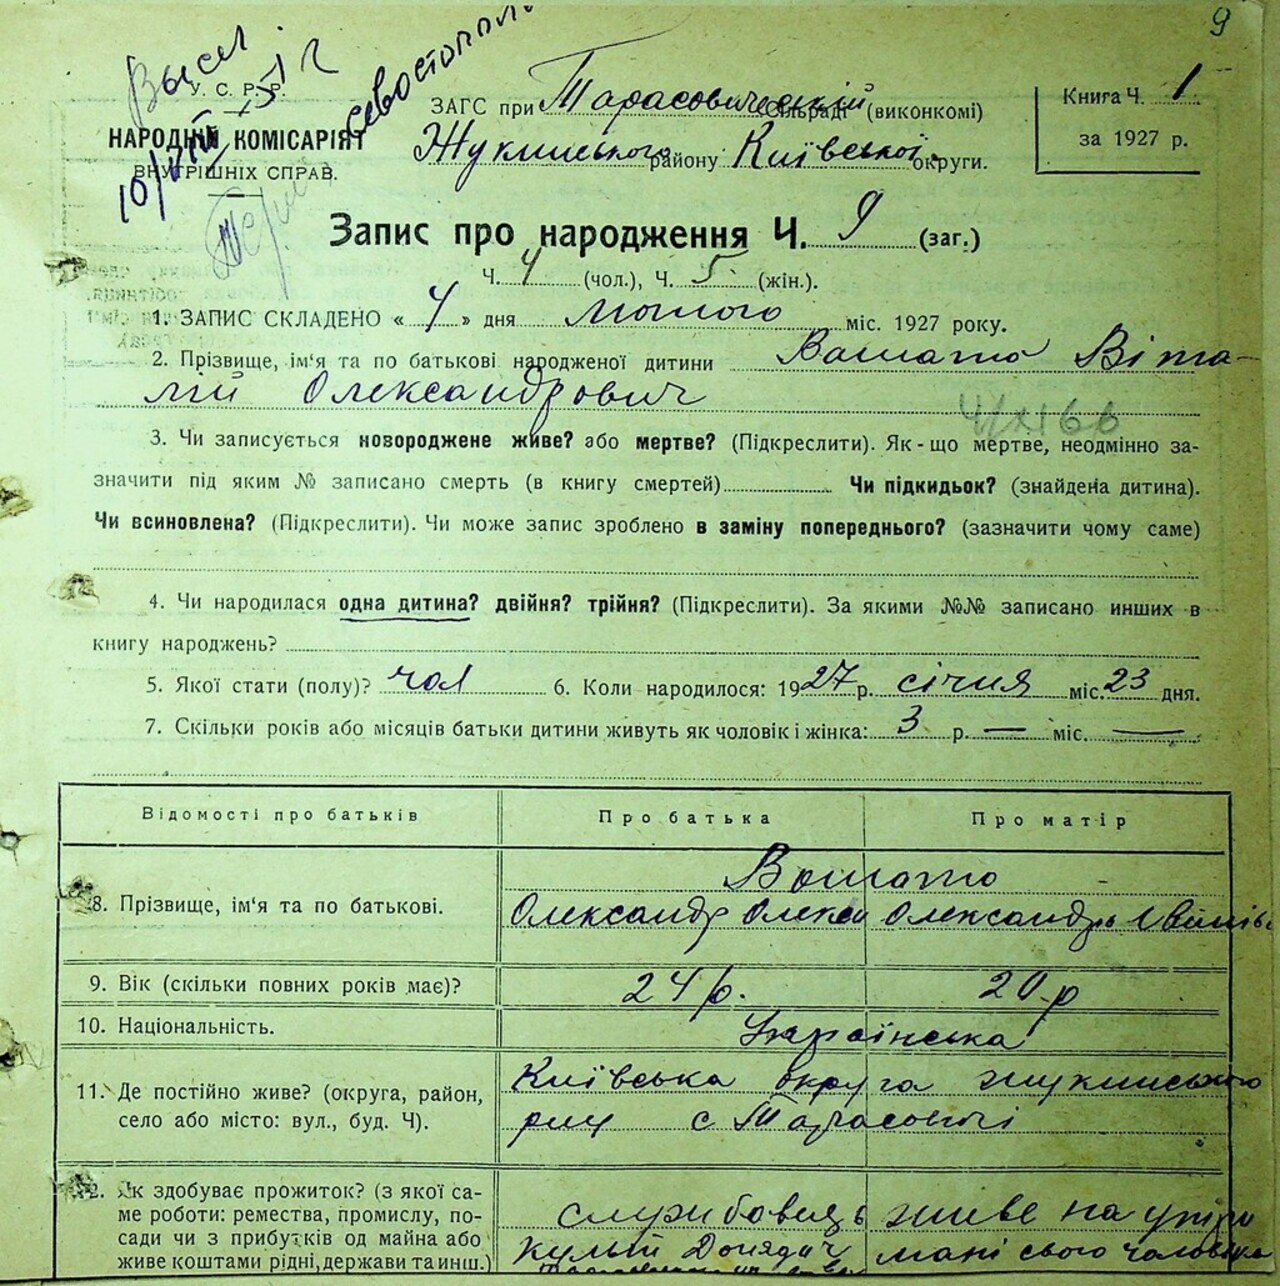 9
Высл
Севастополь
У. С. Р. Р.
НАРОДНІЙ КОМІСАРІЯТ
ВНУТРІШНІХ СПРАВ.
ЗАГС при Тарасовическій Сільраді (виконкомі)
Жукинського району Київської округи.
Книга Ч. 1
за 1927 р.
Запис про народження Ч. 9 (заг.)
Ч. 4 (чол.), Ч. 5 (жін.).
1. ЗАПИС СКЛАДЕНО « 4 » дня лютого міс. 1927 року.
2. Прізвище, ім'я та по батькові народженої дитини Вашато Віта-
лій Олександрович
4/XI 66
3. Чи записується новороджене живе? або мертве? (Підкреслити). Як-що мертве, неодмінно за-
значити під яким № записано смерть (в книгу смертей) Чи підкидьок? (знайдена дитина).
Чи всиновлена? (Підкреслити). Чи може запис зроблено в заміну попереднього? (зазначити чому саме)
4. Чи народилася одна дитина? двійня? трійня? (Підкреслити). За якими №№ записано инших в
книгу народжень?
5. Якої стати (полу)? чол 6. Коли народилося: 1927 р. січня міс. 23 дня.
7. Скільки років або місяців батьки дитини живуть як чоловік і жінка: 3 р. — міс. —
Відомості про батьків Про батька Про матір
Вашато
8. Прізвище, ім'я та по батькові. Олександр Олекси Олександра
9. Вік (скільки повних років має)? 24 р. 20 р
10. Національність. Українська
11. Де постійно живе? (округа, район, Київська округа жукинського
село або місто: вул., буд. Ч). рну с Тарасовичі
12. Як здобуває прожиток? (з якої са-
ме роботи: ремества, промислу, по- службовець живе на утри
сади чи з прибутків од майна або
живе коштами рідні, держави та инш.) мані свого чоловіка